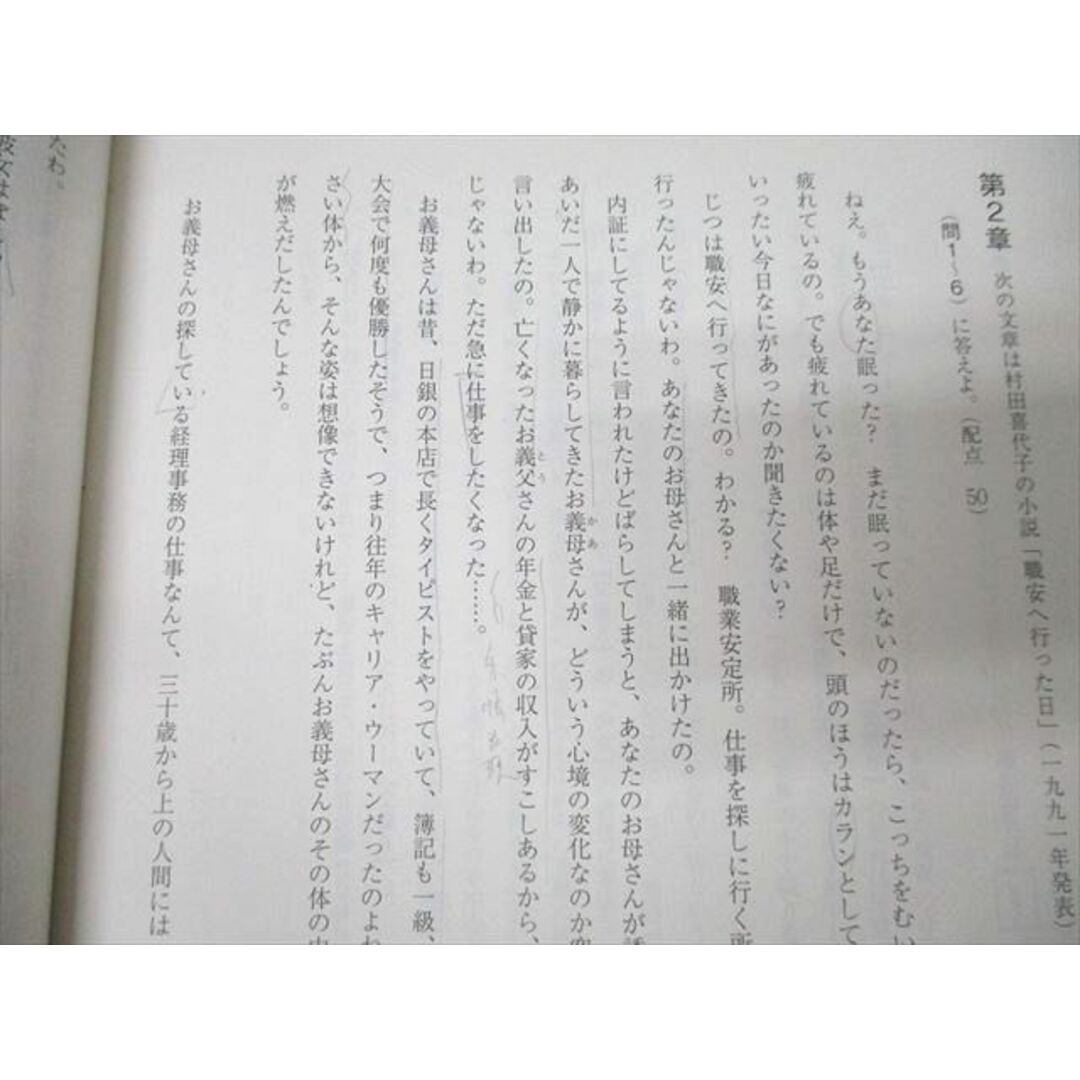 第2章 次の文章は村田喜代子の小説「職安へ行った日」(一九九一年発表)
(問1〜6)に答えよ。(配点 50)
ねえ。もうあなた眠った? まだ眠っていないのだったら、こっちをむい
疲れているの。でも疲れているのは体や足だけで、頭のほうはカランとして
いったい今日なにがあったのか聞きたくない?
じつは職安へ行ってきたの。わかる? 職業安定所。仕事を探しに行く所
行ったんじゃないわ。あなたのお母さんと一緒に出かけたの。
内証にしてるように言われたけどばらしてしまうと、あなたのお母さんが
あいだ一人で静かに暮らしてきたお義母さんが、どういう心境の変化なのか
かあ
言い出したの。亡くなったお義父さんの年金と貸家の収入がすこしあるから、
とう
じゃないわ。ただ急に仕事をしたくなった……。
お義母さんは昔、日銀の本店で長くタイピストをやっていて、簿記も一級、
大会で何度も優勝したそうで、つまり往年のキャリア・ウーマンだったのよね
さい体から、そんな姿は想像できないけれど、たぶんお義母さんのその体の
が燃えだしたんでしょう。
お義母さんの探している経理事務の仕事なんて、三十歳から上の人間には
たわ。